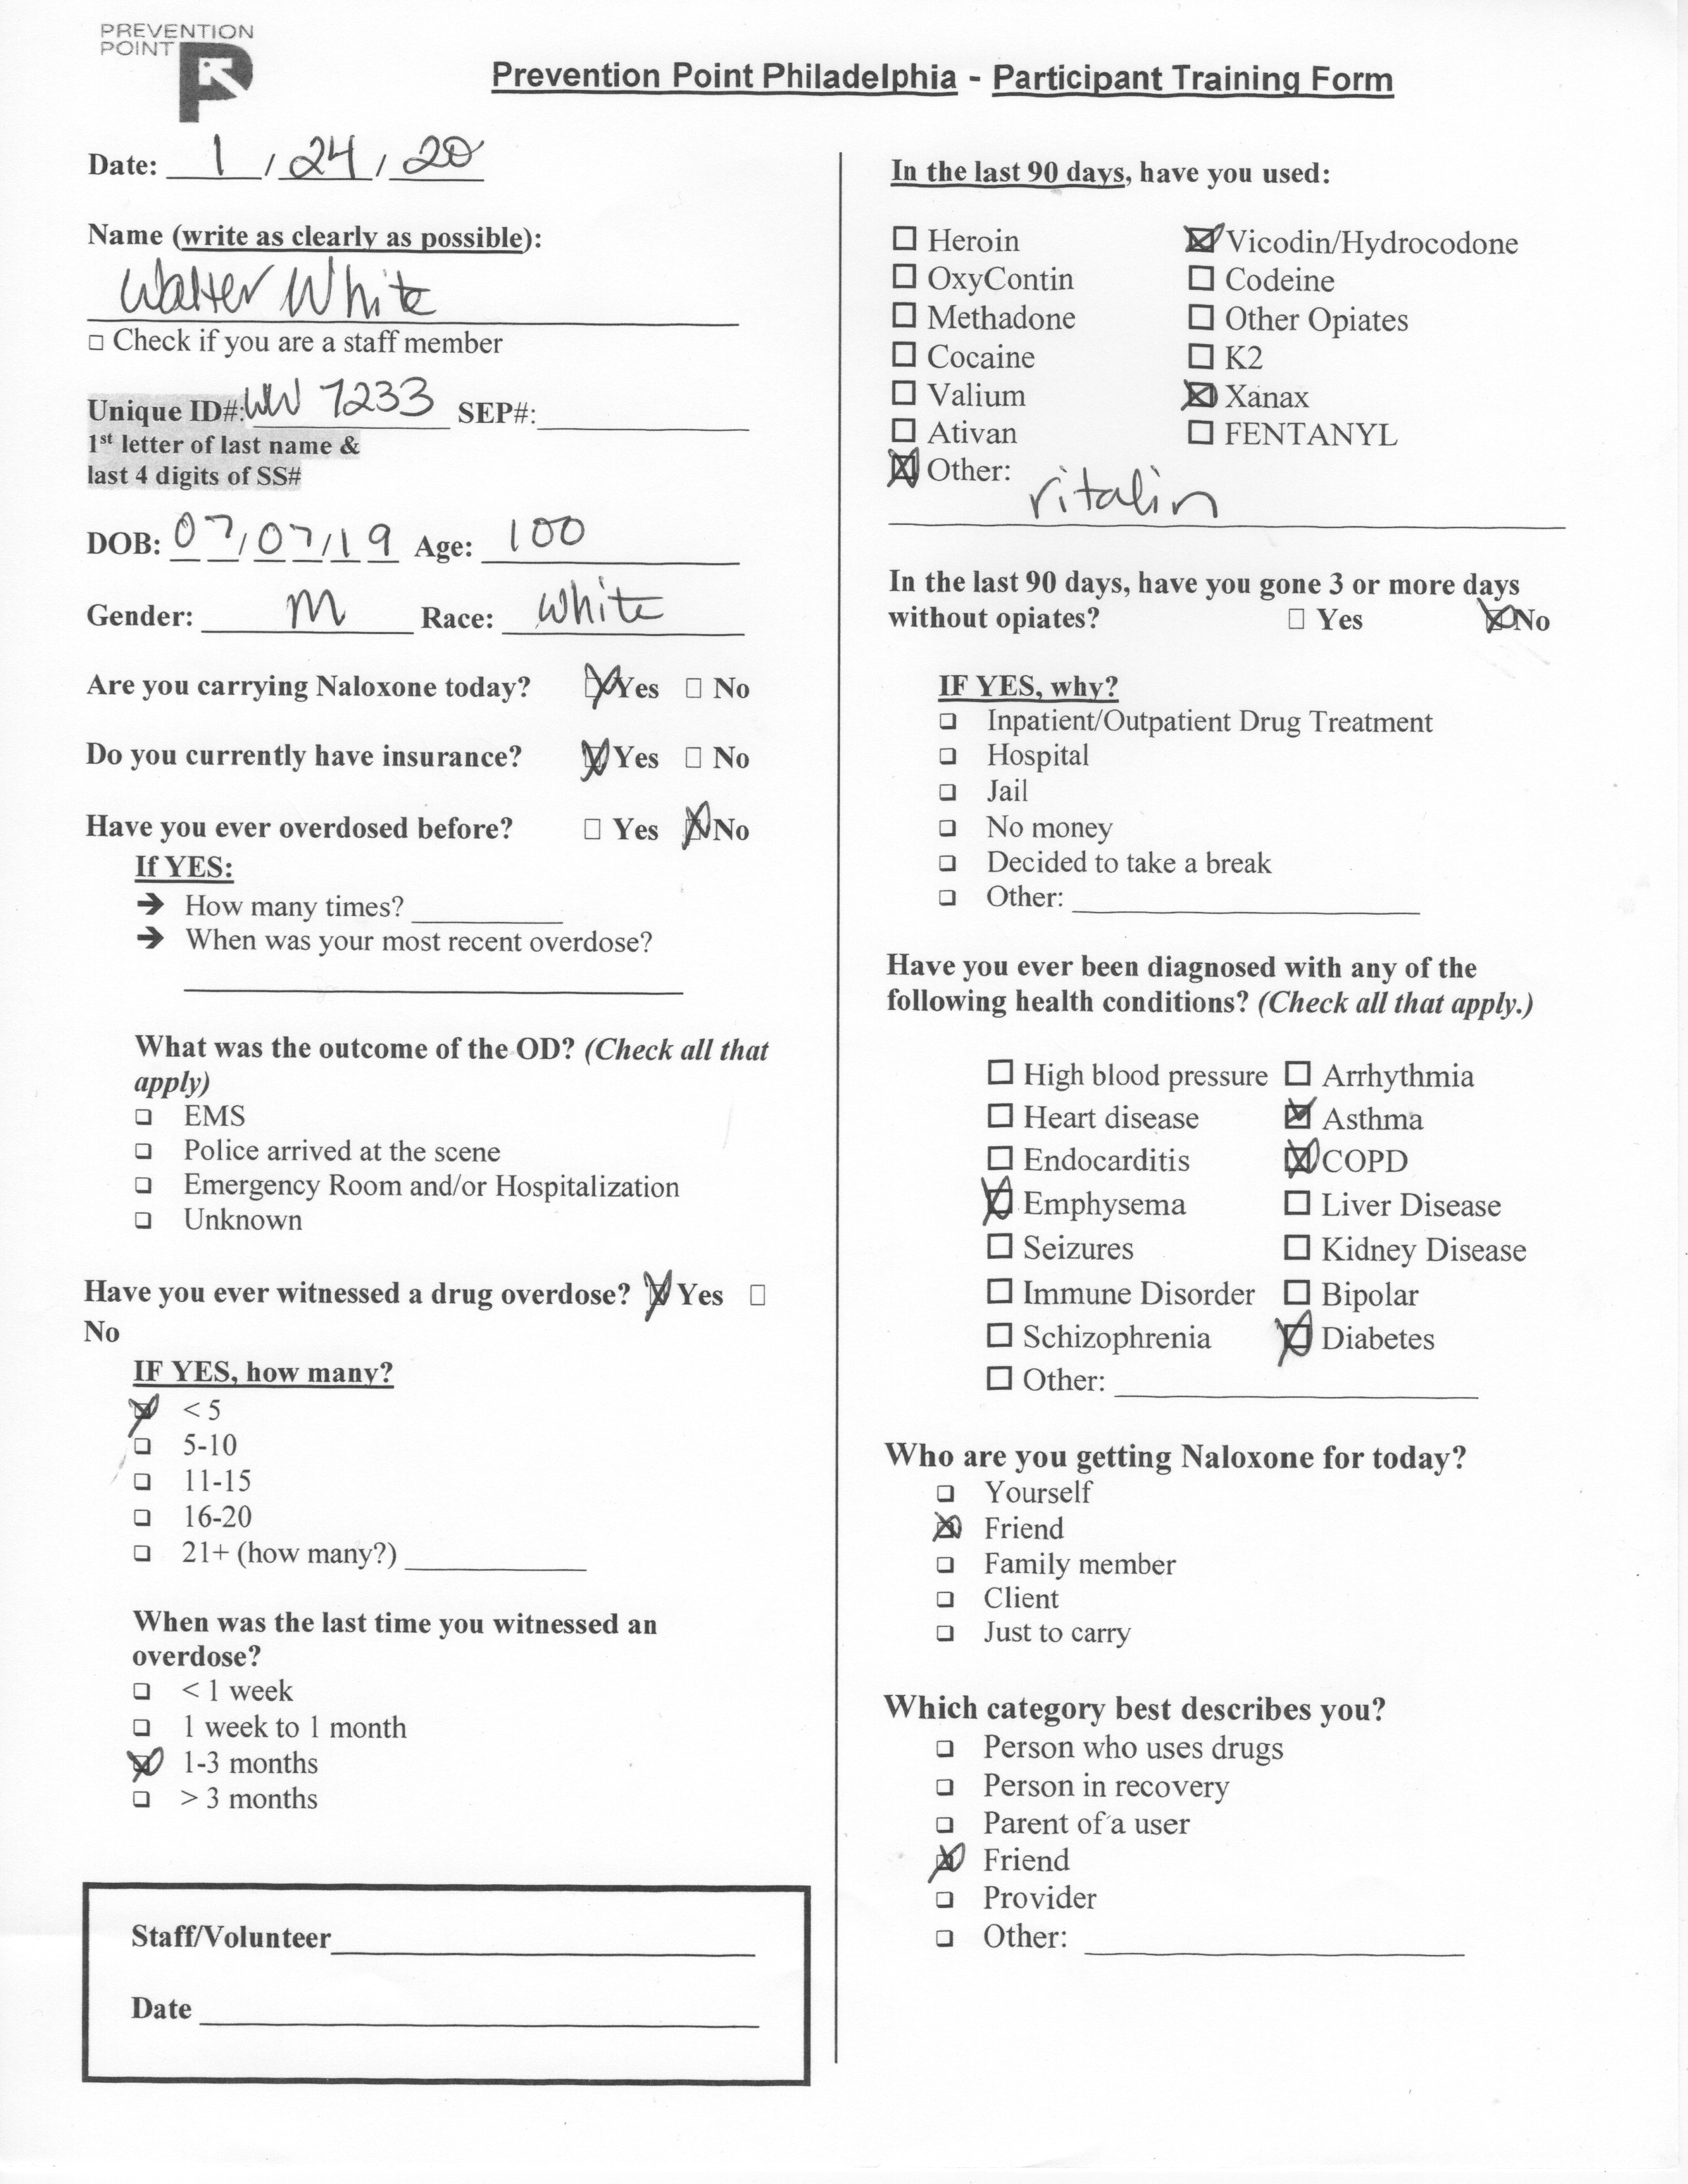 PREVENTION
POINT
Prevention Point Philadelphia - Participant Training Form
Date: 1 / 24 / 20
Name (write as clearly as possible):
Walter White
□ Check if you are a staff member
Unique ID#: WW 7233 SEP#:
1st letter of last name &
last 4 digits of SS#
DOB: 07/07/19 Age: 100
Gender: M Race: White
Are you carrying Naloxone today? ☒ Yes □ No
Do you currently have insurance? ☒ Yes □ No
Have you ever overdosed before? □ Yes ☒ No
If YES:
➔ How many times?
➔ When was your most recent overdose?
What was the outcome of the OD? (Check all that
apply)
❑ EMS
❑ Police arrived at the scene
❑ Emergency Room and/or Hospitalization
❑ Unknown
Have you ever witnessed a drug overdose? ☒ Yes □
No
IF YES, how many?
☒ < 5
❑ 5-10
❑ 11-15
❑ 16-20
❑ 21+ (how many?)
When was the last time you witnessed an
overdose?
❑ < 1 week
❑ 1 week to 1 month
☒ 1-3 months
❑ > 3 months
Staff/Volunteer
Date
In the last 90 days, have you used:
□ Heroin ☒ Vicodin/Hydrocodone
□ OxyContin □ Codeine
□ Methadone □ Other Opiates
□ Cocaine □ K2
□ Valium ☒ Xanax
□ Ativan □ FENTANYL
☒ Other:
ritalin
In the last 90 days, have you gone 3 or more days
without opiates? □ Yes ☒ No
IF YES, why?
❑ Inpatient/Outpatient Drug Treatment
❑ Hospital
❑ Jail
❑ No money
❑ Decided to take a break
❑ Other:
Have you ever been diagnosed with any of the
following health conditions? (Check all that apply.)
□ High blood pressure □ Arrhythmia
□ Heart disease ☒ Asthma
□ Endocarditis ☒ COPD
☒ Emphysema □ Liver Disease
□ Seizures □ Kidney Disease
□ Immune Disorder □ Bipolar
□ Schizophrenia ☒ Diabetes
□ Other:
Who are you getting Naloxone for today?
❑ Yourself
☒ Friend
❑ Family member
❑ Client
❑ Just to carry
Which category best describes you?
❑ Person who uses drugs
❑ Person in recovery
❑ Parent of a user
☒ Friend
❑ Provider
❑ Other: